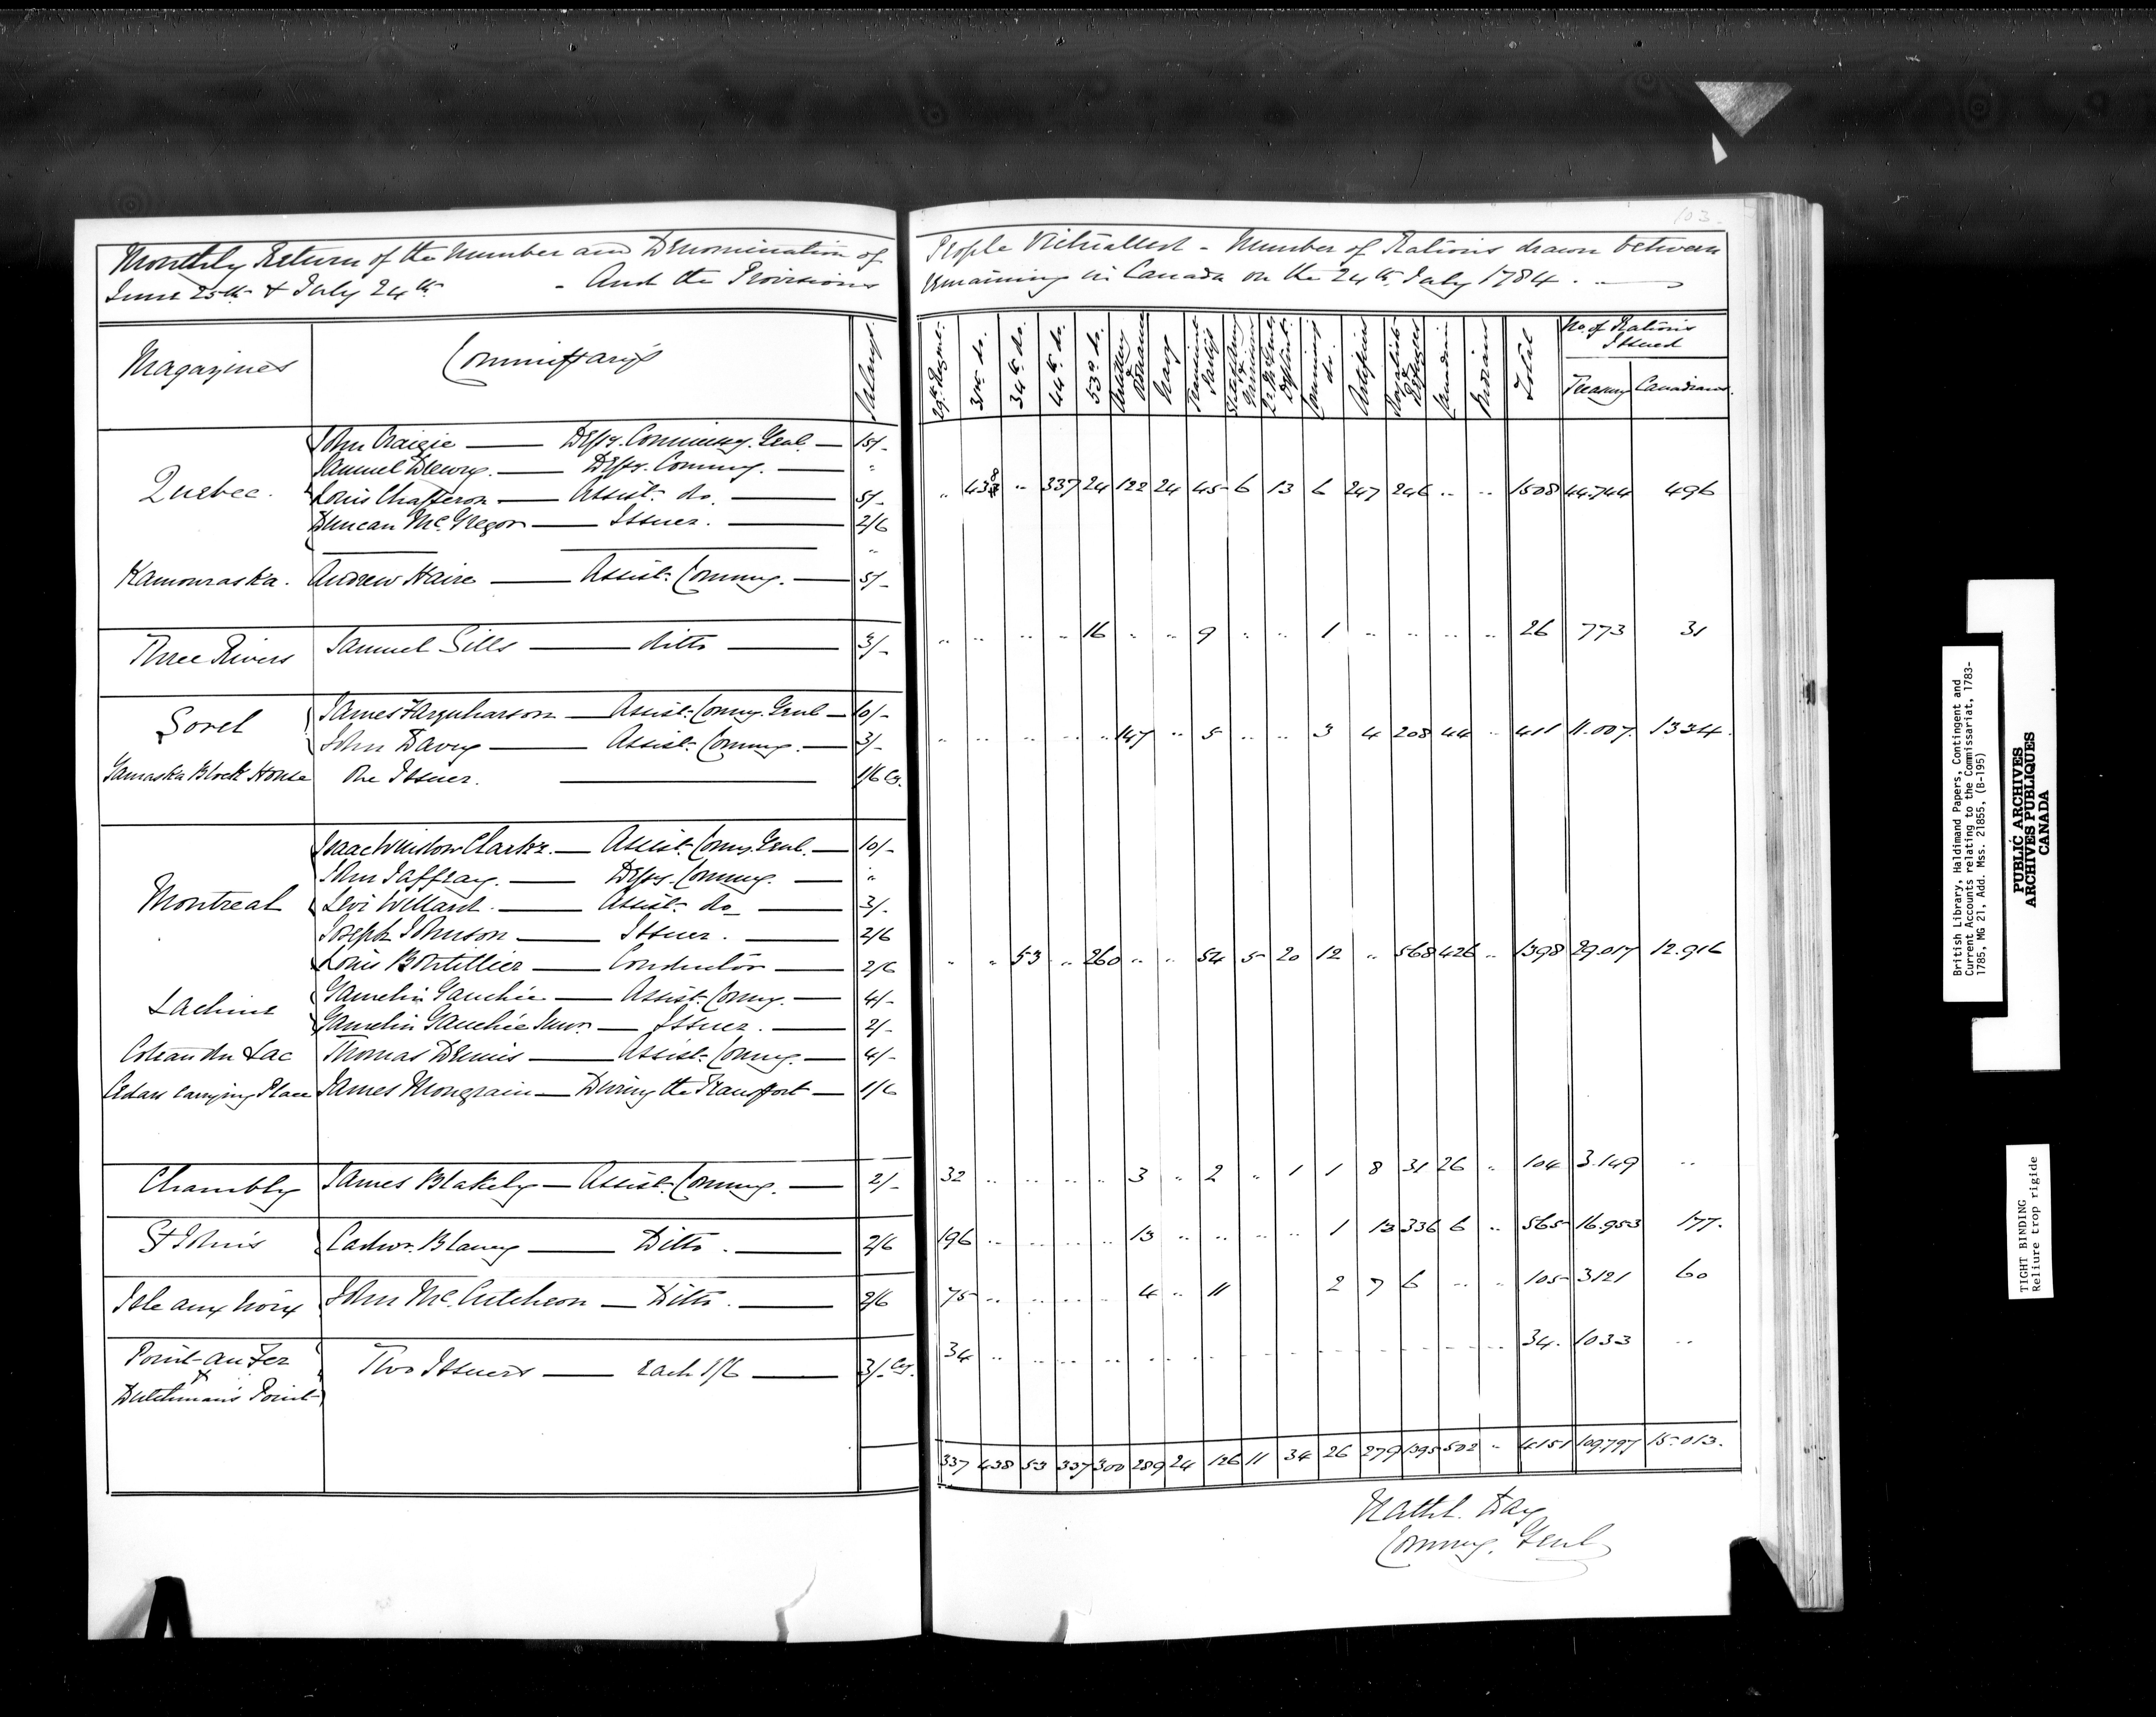 103.
Monthly Return of the Number and Denomination of People Victualled - Number of Rations drawn between
June 25th & July 24th - And the Provisions remaining in Canada on the 24th July 1784.
Magazines Commissarys Salarys 29th Regmt. 31st do. 34th do. 44th do. 53d do. Artillery & Ordnance Navy Seamen Total No. of Rations Issued
Treasury Canadians
John Craigie — Depy. Commissy. Genl. — 15/-
Samuel Drewry. — Depy. Commy. — "
Quebec. Louis Chaperon — Assist. do. — 5/- " 438 " 337 24 122 24 45 6 13 6 247 246 " " 1508 44.744 496
Duncan McGregor — Issuer. — 2/6
"
Kamouraska. Andrew Haire — Assist. Commy. — 5/-
Three Rivers Samuel Sills — ditto — 3/- " " " " 16 " " 9 " " 1 " " " " 26 773 31
James Farquharson — Assist. Commy. Genl — 10/-
Sorel John Davy — Assist. Commy. — 3/- " " " " " 147 " 5 " " 3 4 208 44 " 411 11.007. 1334.
Yamaska Block House One Issuer. — 1/6 Cy.
Isaac Winslow Clarke. — Assist. Commy. Genl. — 10/-
John Jaffray. — Depy. Commy. — "
Montreal Levi Willard. — Assist. do — 3/-
Joseph Johnson — Issuer. — 2/6
Louis Boutillier — Conductor — 2/6 " " 53 " 260 " " 54 5 20 12 " 568 426 " 1398 29.017 12.916
Lachine Gamelin Gauchée — Assist. Commy. — 4/-
Gamelin Gauchée Junr. — Issuer. — 2/-
Coteau du Lac Thomas Dennis — Assist. Commy. — 4/-
Cedars Carrying Place James Mongrain — During the Transport — 1/6
Chambly James Blakely — Assist. Commy. — 2/- 32 " " " " 3 " 2 " 1 1 8 31 26 " 104 3.149 "
St Johns Cadwr. Blaney — Ditto. — 2/6 196 " " " " 13 " " " " 1 13 336 6 " 565 16.953 177.
Isle aux Noix John McCutcheon — Ditto. — 2/6 75 " " " " 4 " 11 2 7 6 " " 105 3121 60
Point-au-Fer
& Two Issuers — each 1/6 — 3/- Cy. 34 " " " " " " " " " " " " " " 34. 1033 "
Dutchman's Point
337 438 53 337 300 289 24 126 11 34 26 279 1395 502 " 4151 109.797 15.013.
Nathl. Day
Commy. Genl
British Library, Haldimand Papers, Contingent and
Current Accounts relating to the Commissariat, 1783-
1785, MG 21, Add. Mss. 21855, (B-195)
PUBLIC ARCHIVES
ARCHIVES PUBLIQUES
CANADA
TIGHT BINDING
Reliure trop rigide